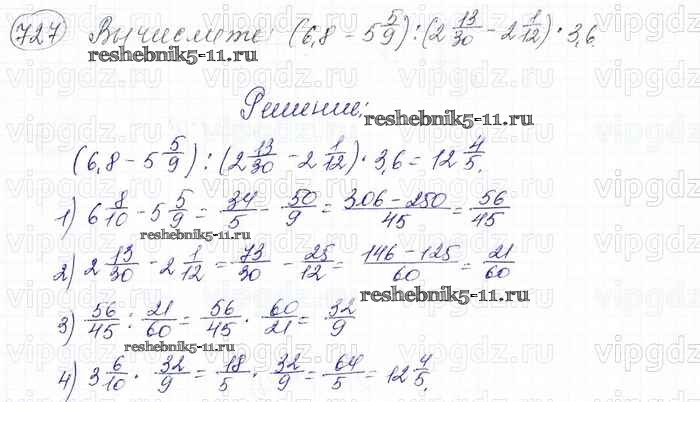 727 Вычислите: (6,8 - 5 5/9) : (2 13/30 - 2 1/12) · 3,6
reshebnik5-11.ru
Решение:
reshebnik5-11.ru
(6,8 - 5 5/9) : (2 13/30 - 2 1/12) · 3,6 = 12 4/5.
1) 6 8/10 - 5 5/9 = 34/5 - 50/9 = (306 - 250)/45 = 56/45
reshebnik5-11.ru
2) 2 13/30 - 2 1/12 = 73/30 - 25/12 = (146 - 125)/60 = 21/60
reshebnik5-11.ru
3) 56/45 : 21/60 = 56/45 · 60/21 = 32/9
reshebnik5-11.ru
4) 3 6/10 · 32/9 = 18/5 · 32/9 = 64/5 = 12 4/5.
vipgdz.ru